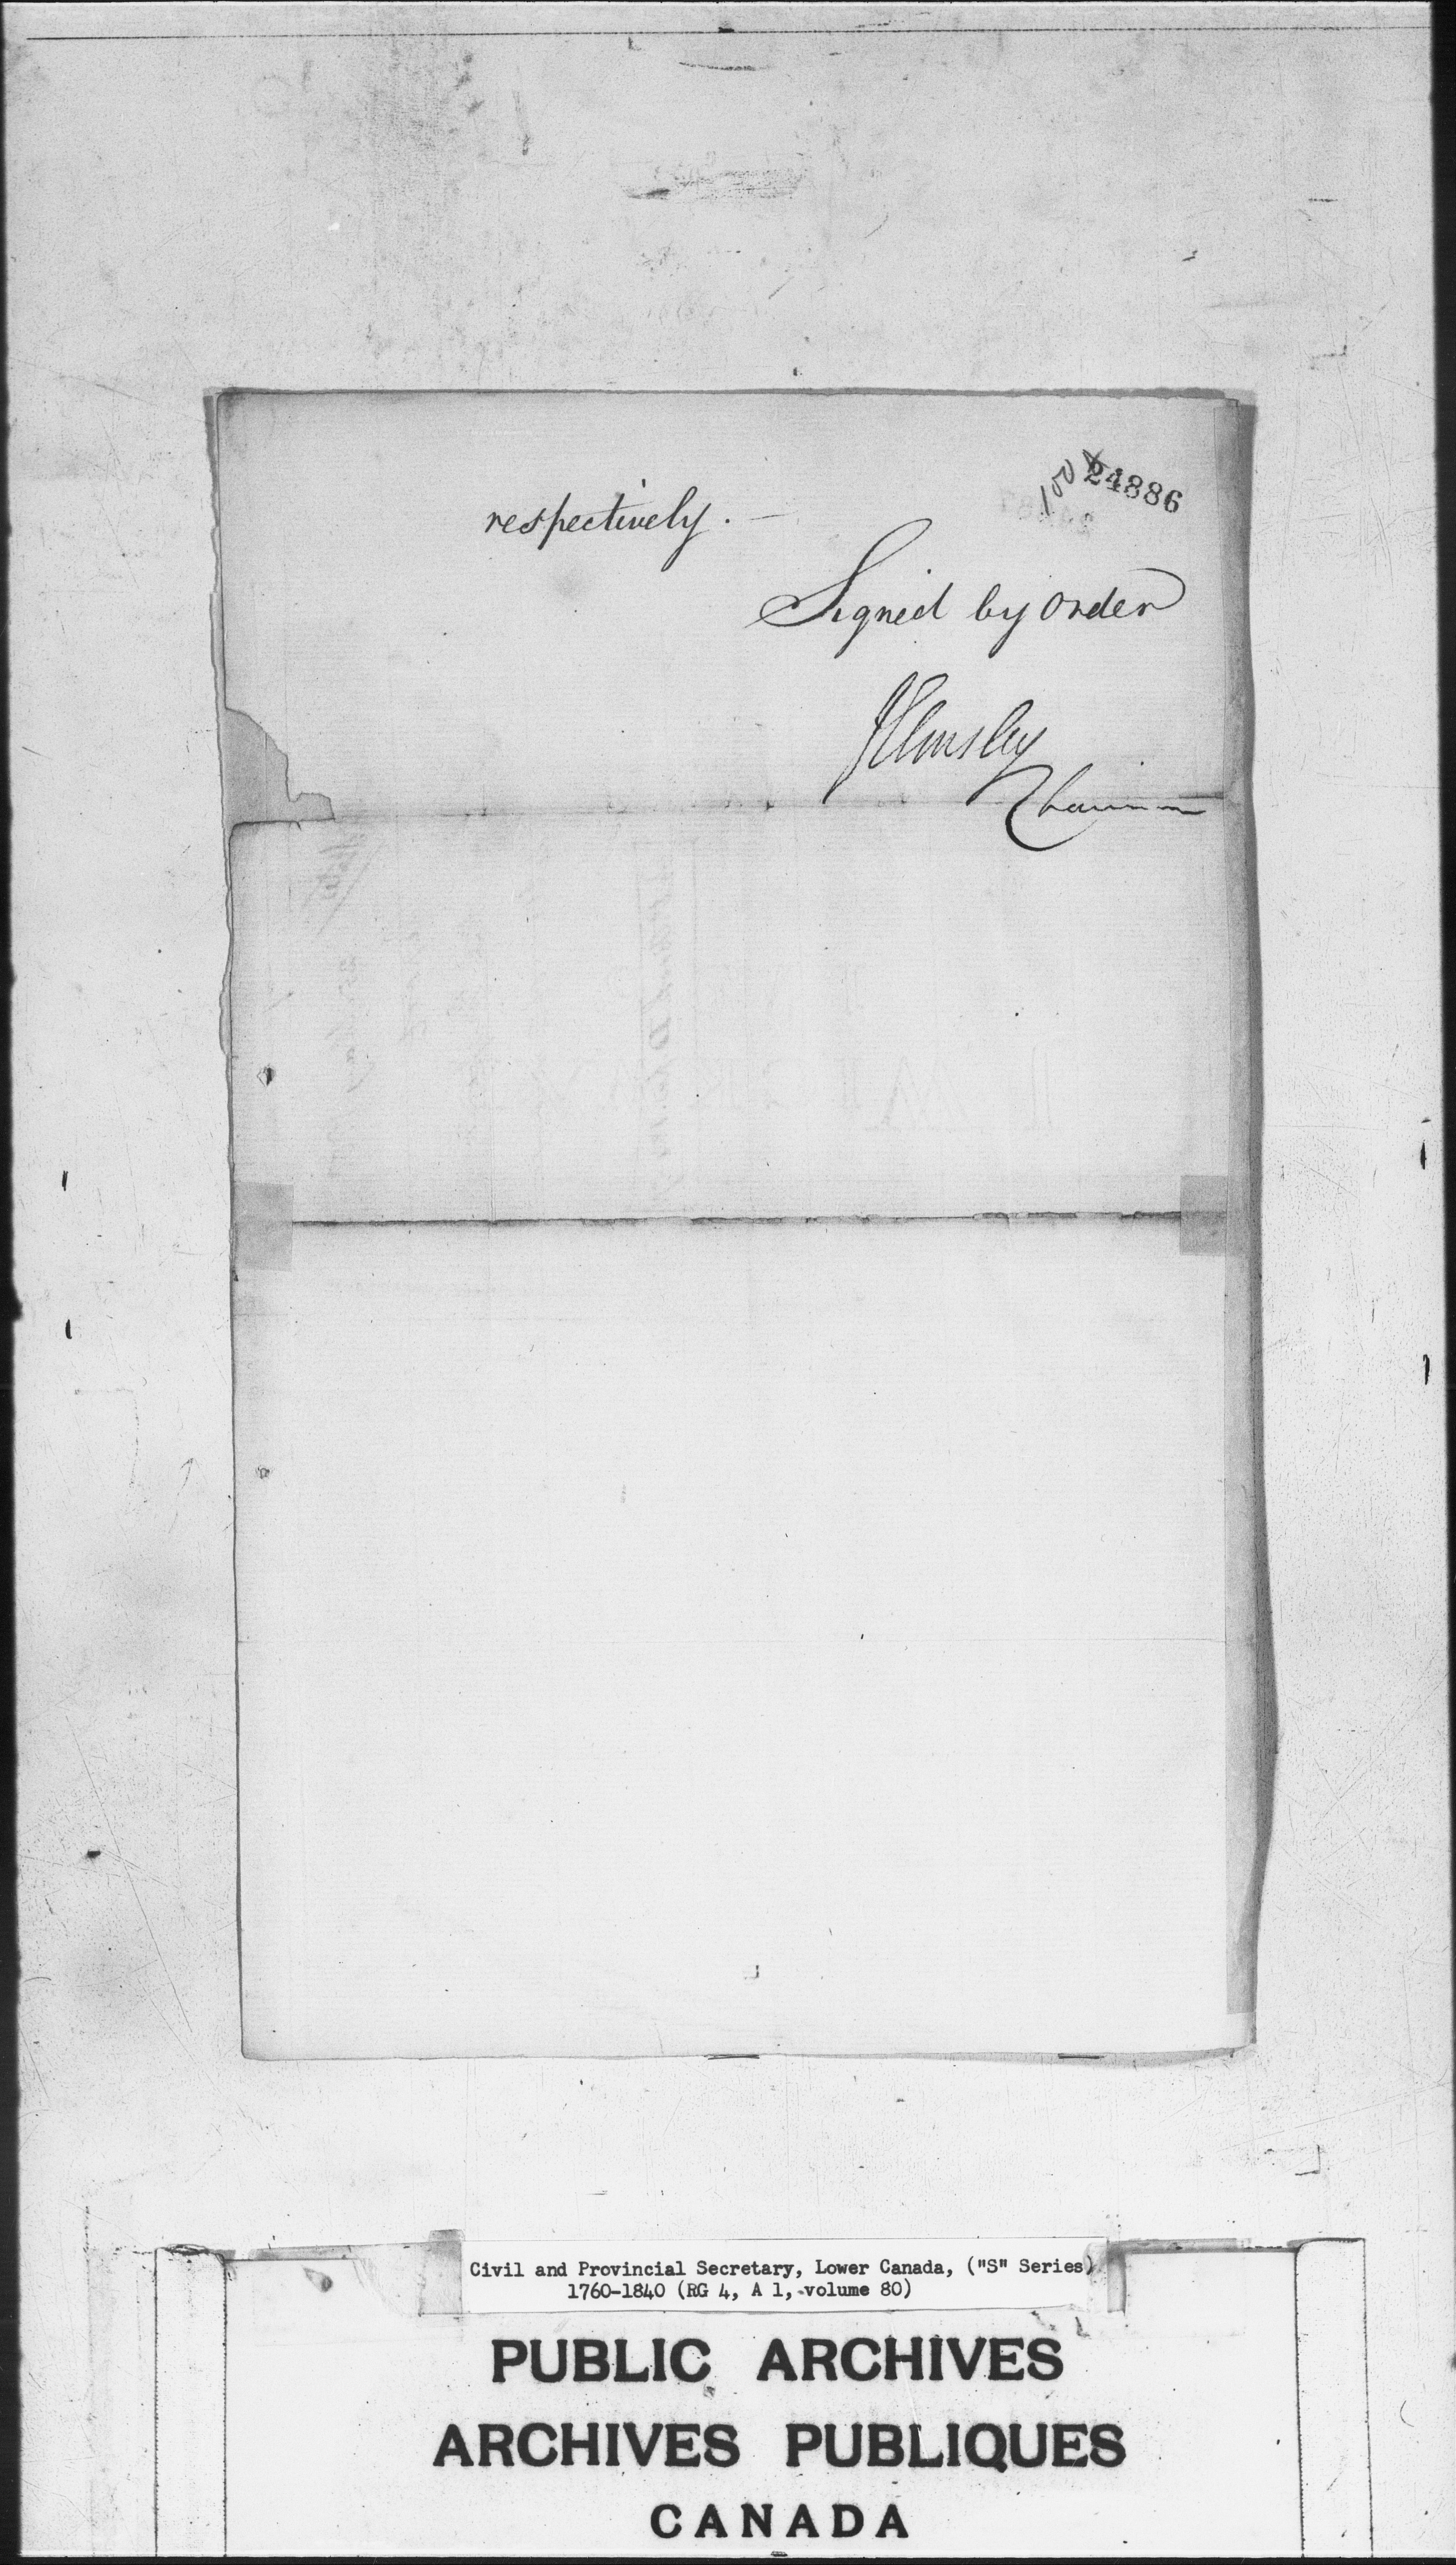 100 24886
respectively. —
Signed by order
J Elmsley
Chairman
Civil and Provincial Secretary, Lower Canada, ("S" Series)
1760-1840 (RG 4, A 1, volume 80)
PUBLIC ARCHIVES
ARCHIVES PUBLIQUES
CANADA